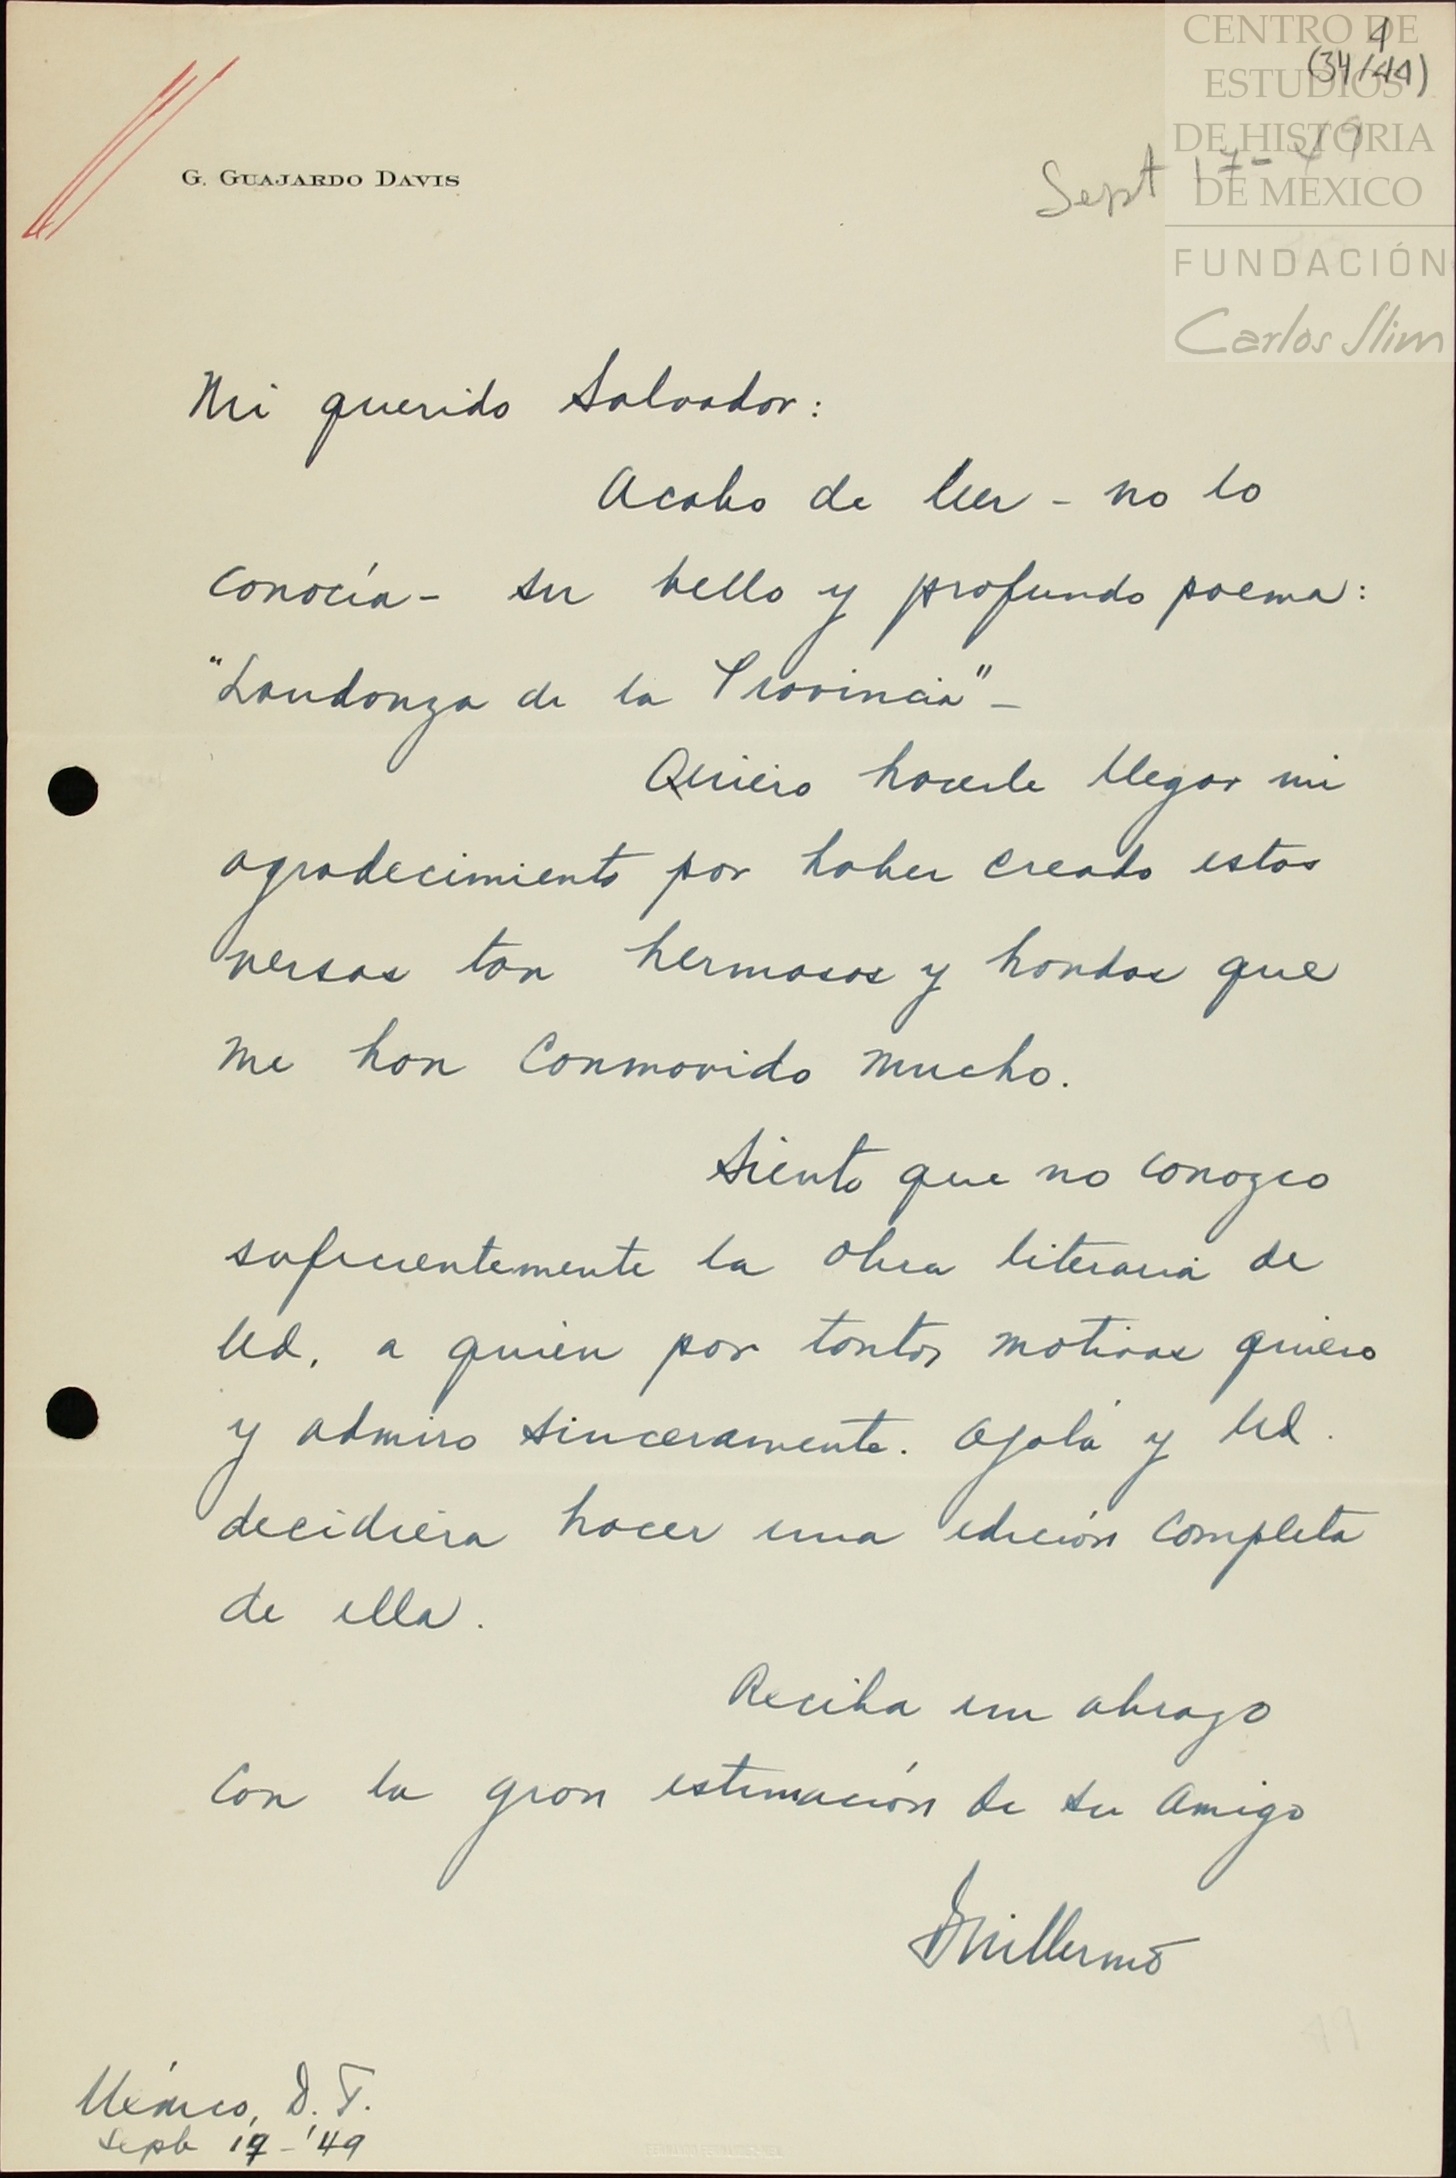 CENTRO DE
ESTUDIOS
DE HISTORIA
DE MEXICO
FUNDACIÓN
Carlos Slim
(34/44)
G. GUAJARDO DAVIS
Sept 17-49
Mi querido Salvador:
Acabo de leer - no lo
conocía - su bello y profundo poema:
"Laudanza de la Provincia" -
Quiero hacerle llegar mi
agradecimiento por haber creado estos
versos tan hermosos y hondos que
me han conmovido mucho.
Siento que no conozco
suficientemente la obra literaria de
Ud. a quien por tantos motivos quiero
y admiro sinceramente. Ojalá y Ud.
decidiera hacer una edición completa
de ella.
Reciba un abrazo
con la gran estimación de su amigo
Guillermo
México, D.F.
Septe 17-'49